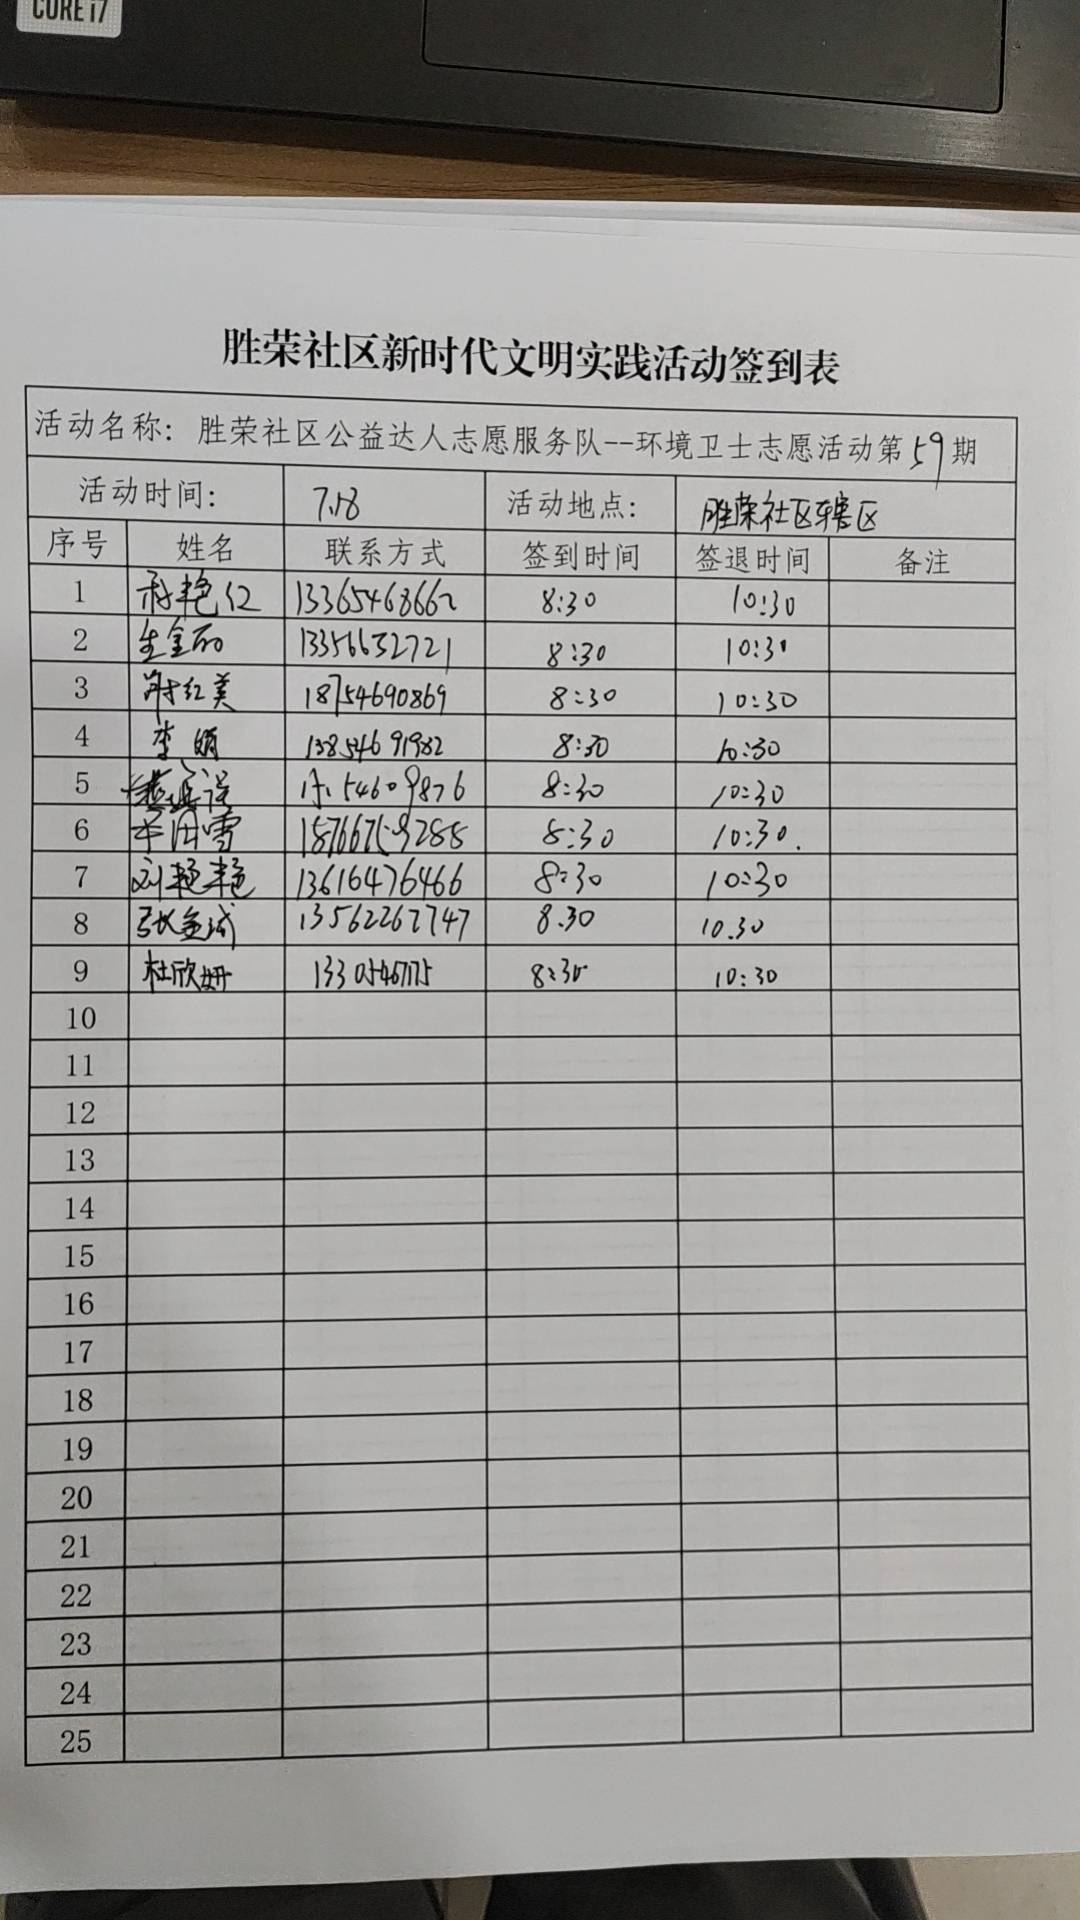 CORE i7
胜荣社区新时代文明实践活动签到表
活动名称：胜荣社区公益达人志愿服务队--环境卫士志愿活动第59期
活动时间： 7.18 活动地点： 胜荣社区辖区
序号 姓名 联系方式 签到时间 签退时间 备注
1 艳红 13365468662 8:30 10:30
2 13356632721 8:30 10:30
3 红美 18754690869 8:30 10:30
4 李娟 13854691982 8:30 10:30
5 8:30 10:30
6 8:30 10:30.
7 刘艳艳 13616476466 8:30 10:30
8 张金 13562267747 8.30 10.30
9 杜欣妍 8:30 10:30
10
11
12
13
14
15
16
17
18
19
20
21
22
23
24
25